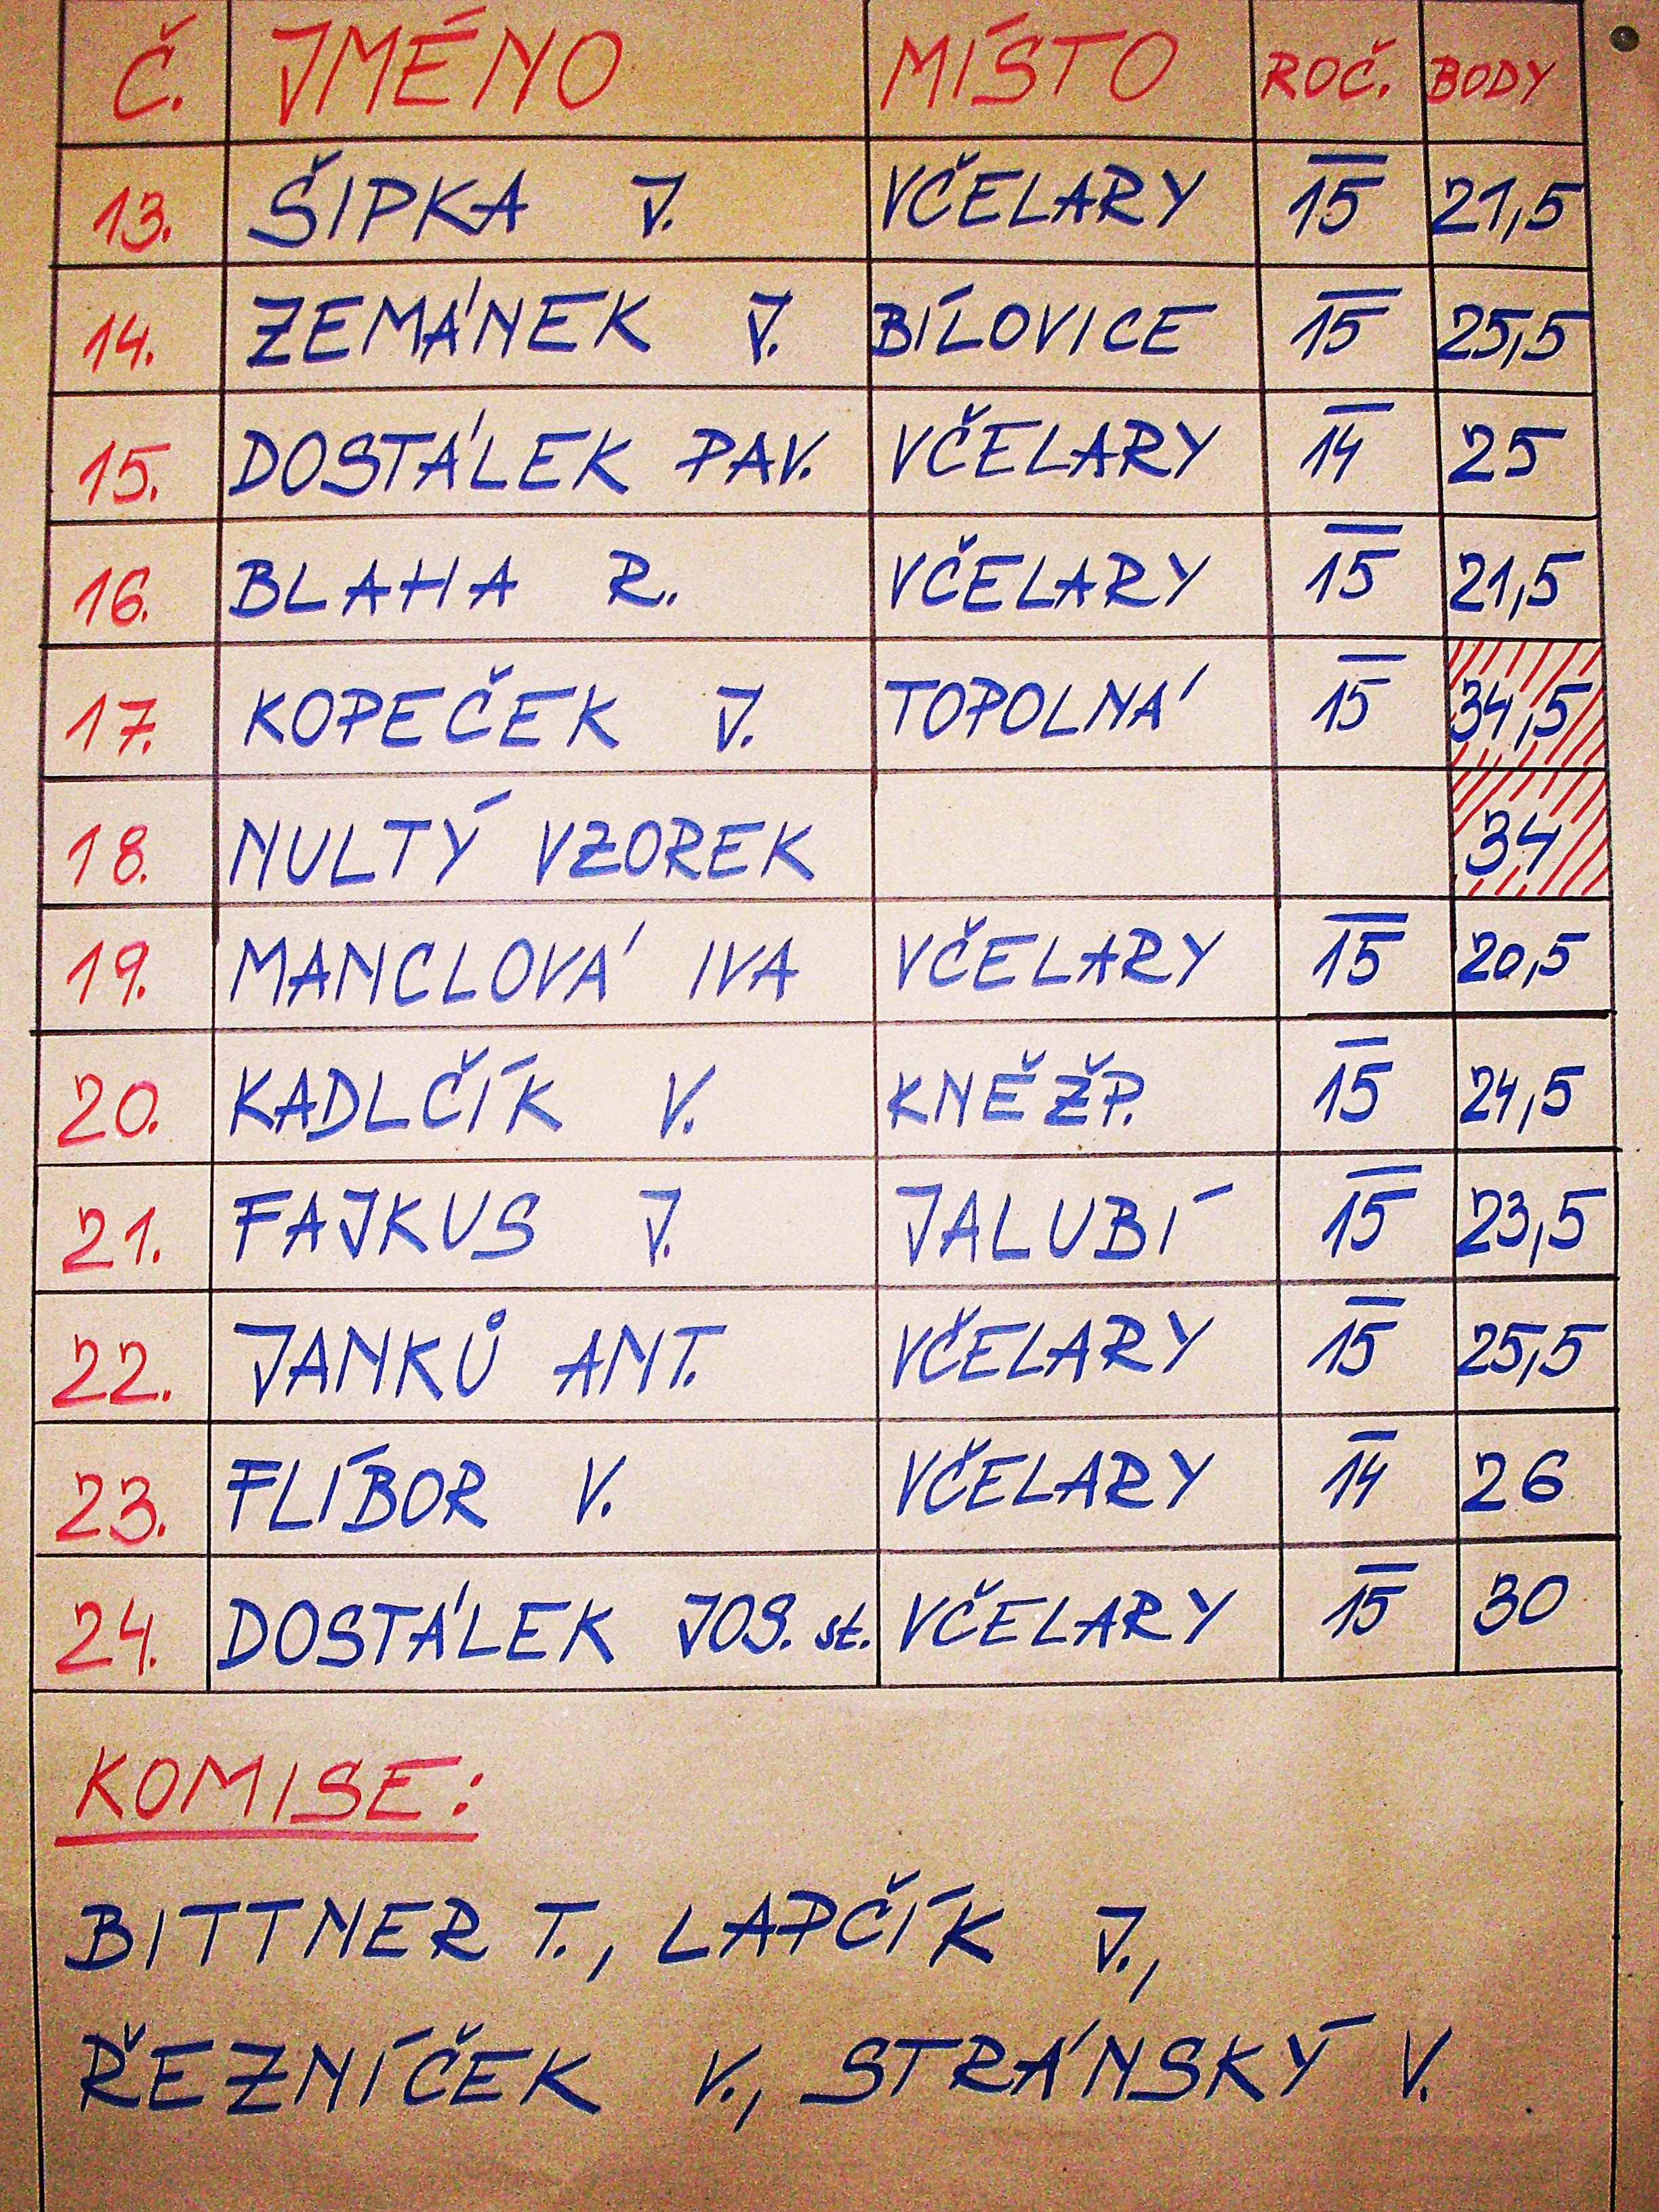 Č. JMÉNO MÍSTO ROČ. BODY
13. ŠIPKA J. VČELARY 15 21,5
14. ZEMÁNEK J. BÍLOVICE 15 25,5
15. DOSTÁLEK PAV. VČELARY 14 25
16. BLAHA R. VČELARY 15 21,5
17. KOPEČEK J. TOPOLNÁ 15 34,5
18. NULTÝ VZOREK 34
19. MANCLOVÁ IVA VČELARY 15 20,5
20. KADLČÍK V. KNĚŽP. 15 24,5
21. FAJKUS J. JALUBÍ 15 23,5
22. JANKŮ ANT. VČELARY 15 25,5
23. FLÍBOR V. VČELARY 14 26
24. DOSTÁLEK JOS. st. VČELARY 15 30
KOMISE:
BITTNER T., LAPČÍK J.,
ŘEZNÍČEK V., STRÁNSKÝ V.